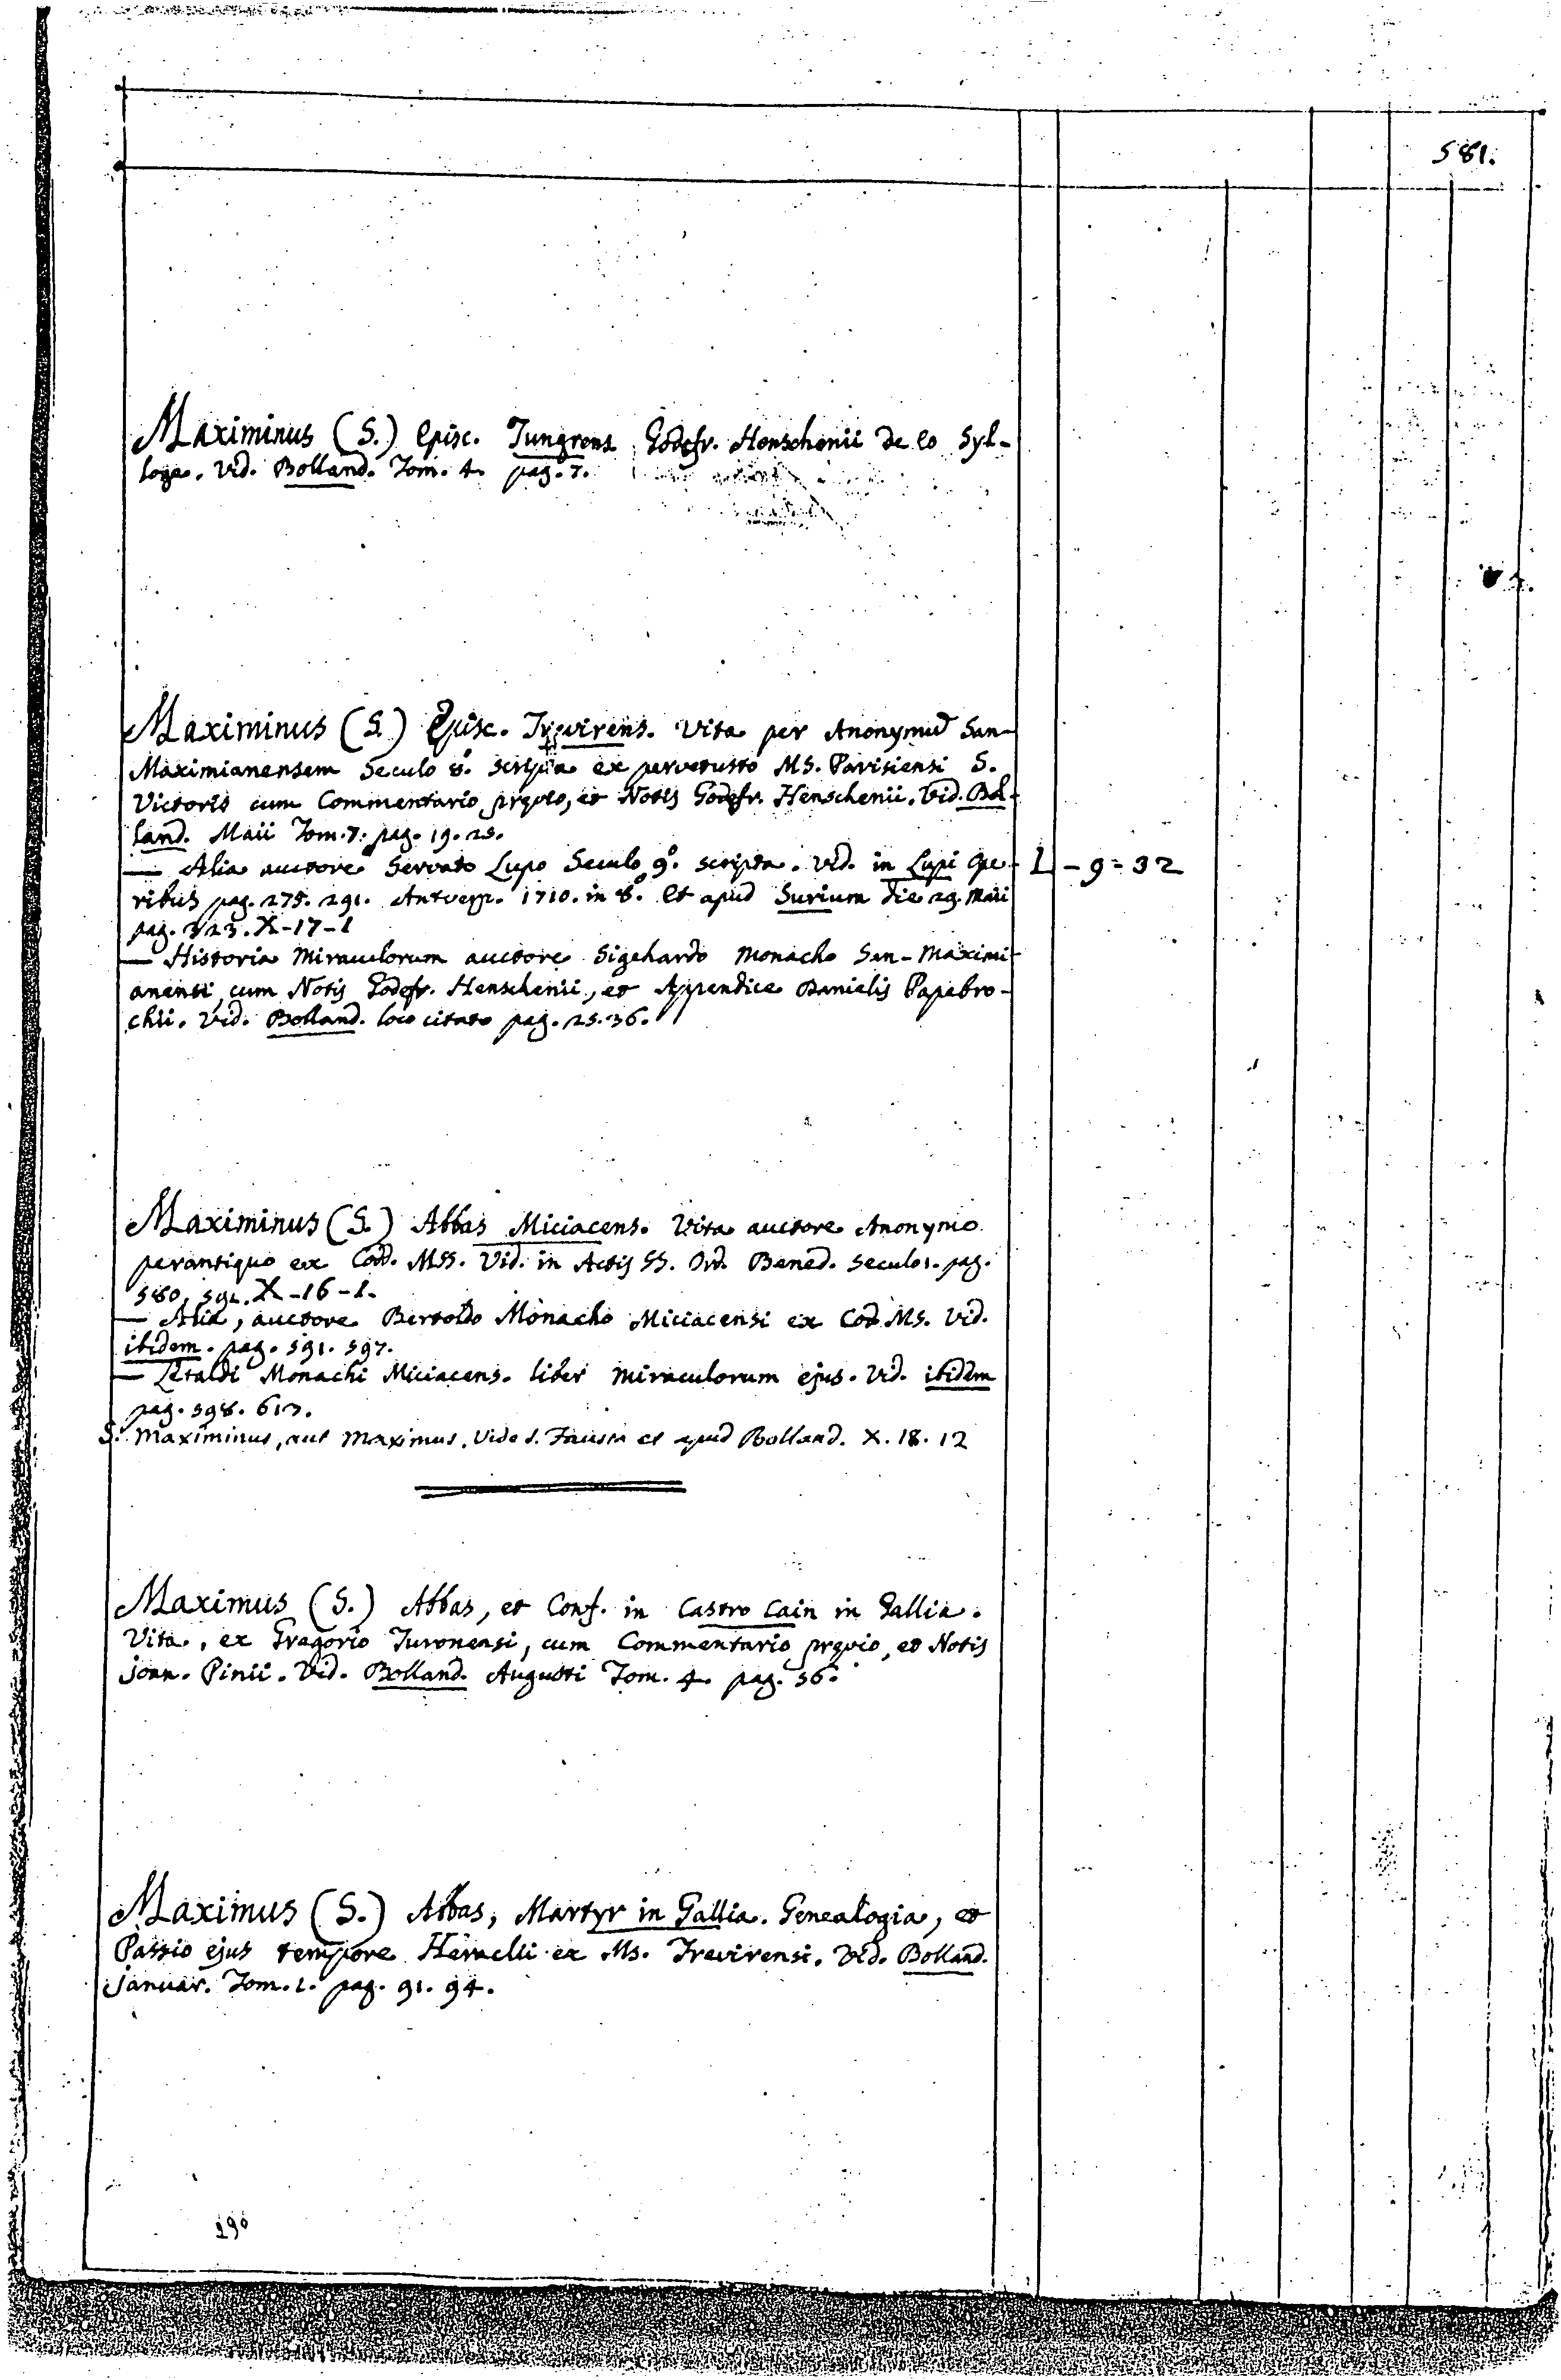 581.
Maximinus (S.) Episc. Tungrens Godefr. Henschenii de eo Syl-
loge. Vid. Bolland. Tom. 4. pag. 7.
Maximinus (S.) Episc. Trevirens. Vita per Anonymū San-
Maximianensem Seculo 8.° scripta ex pervetusto MS. Parisiensi S.
Victoris cum Commentario pręvio, et Notis Godefr. Henschenii. Vid. Bol-
land. Maii Tom. 7. pag. 19. 25.
— Alia auctore Servato Lupo Seculo 9.° scripta. Vid. in Lupi Ope- L - 9 = 32
ribus pag. 275. 291. Antverp. 1710. in 8.° Et apud Surium die 29. Maii
pag. 323. X-17-1
— Historia Miraculorum auctore Sigehardo Monacho San-Maximi-
anensi, cum Notis Godefr. Henschenii, et Appendice Danielis Papebro-
chii. Vid. Bolland. loco citato pag. 25. 36.
Maximinus (S.) Abbas Miciacens. Vita auctore Anonymo
perantiquo ex Codd. MSS. Vid. in Actis SS. Ord. Bened. Seculo 1. pag.
580. 591. X-16-1.
— Alia, auctore Bertoldo Monacho Miciacensi ex Cod. MS. Vid.
ibidem. pag. 591. 597.
— Letaldi Monachi Miciacens. liber miraculorum ejus. Vid. ibidem
pag. 598. 613.
S. Maximinus, aut Maximus. Vide S. Fausta et apud Bolland. X. 18. 12
Maximus (S.) Abbas, et Conf. in Castro Cain in Gallia.
Vita, ex Gregorio Turonensi, cum Commentario pręvio, et Notis
Joan. Pinii. Vid. Bolland. Augusti Tom. 4. pag. 36.
Maximus (S.) Abbas, Martyr in Gallia. Genealogia, et
Passio ejus tempore Heraclii ex Ms. Trevirensi. Vid. Bolland.
Januar. Tom. 1. pag. 91. 94.
290